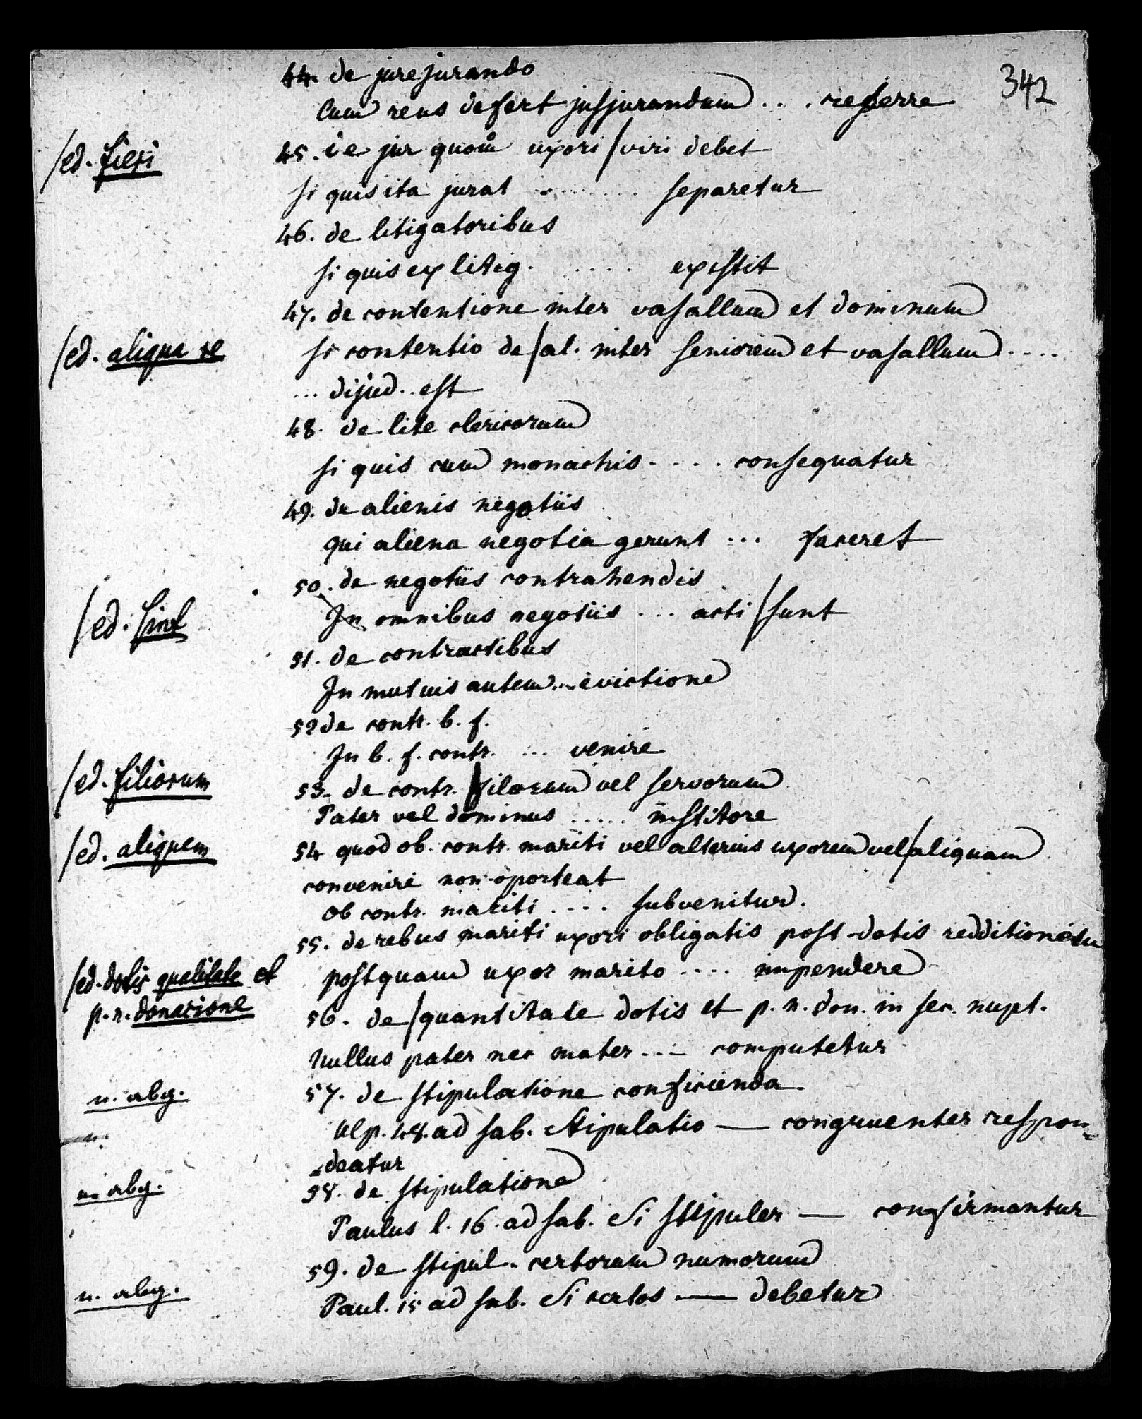 342
44. de jurejurando
Cum reus defert jusjurandum . . . referre
/ed. fieri
45. de jur quom uxori / viri debet
si quis ita jurat . . . . . . separetur
46. de litigatoribus
si quis ex litig. . . . . . existit
47. de contentione inter vasallum et dominum
/ed. aliqua re
si contentio de / al. inter seniorem et vasallum . . . .
... dijud. est
48. de lite clericorum
si quis cum monachis . . . . consequatur
49. de alienis negotiis
qui aliena negotia gerunt ... faceret
50. de negotiis contrahendis
/ed. sint
In omnibus negotiis ... acti / sunt
51. de contractibus
In mutuis autem ... evictione
52 de contr. b. f.
In b. f. contr. ... venire
/ed. filiorum
53. de contr. filiorum vel servorum
Pater vel dominus ..... institore
/ed. aliquem
54 quod ob. contr. mariti vel alterius uxorem vel / aliquam
convenire non oporteat
ob contr. mariti .... subvenitur.
55. de rebus mariti uxori obligatis post dotis redditionem
/ed. dotis qualitate et
postquam uxor marito .... impendere
p. n. donacione
56. de / quantitate dotis et p. n. don. in sec. nupt.
Nullus pater nec mater ... computetur
n. abg.
57. de stipulatione conficienda
Ulp. 48. ad sab. Stipulatio — congruenter respon-
deatur
n. abg.
58. de stipulatione
Paulus l. 16. ad sab. Si stipuler — confirmantur
59. de stipul. certorum numorum
n. abg.
Paul. 15 ad sab. Si certos — debetur